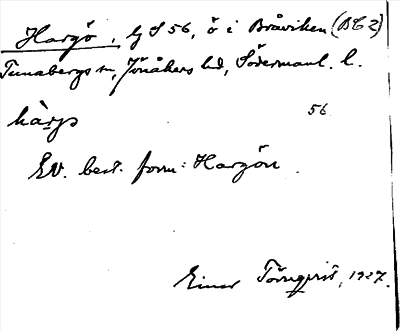 Hargö, GS 56, ö i Bråviken (BC2)
Tunabergs sn, Jönåkers hd, Södermanl. l.
hàrgö 56
EV. best. form: Hargön.
Einar Törnqvist, 1927.